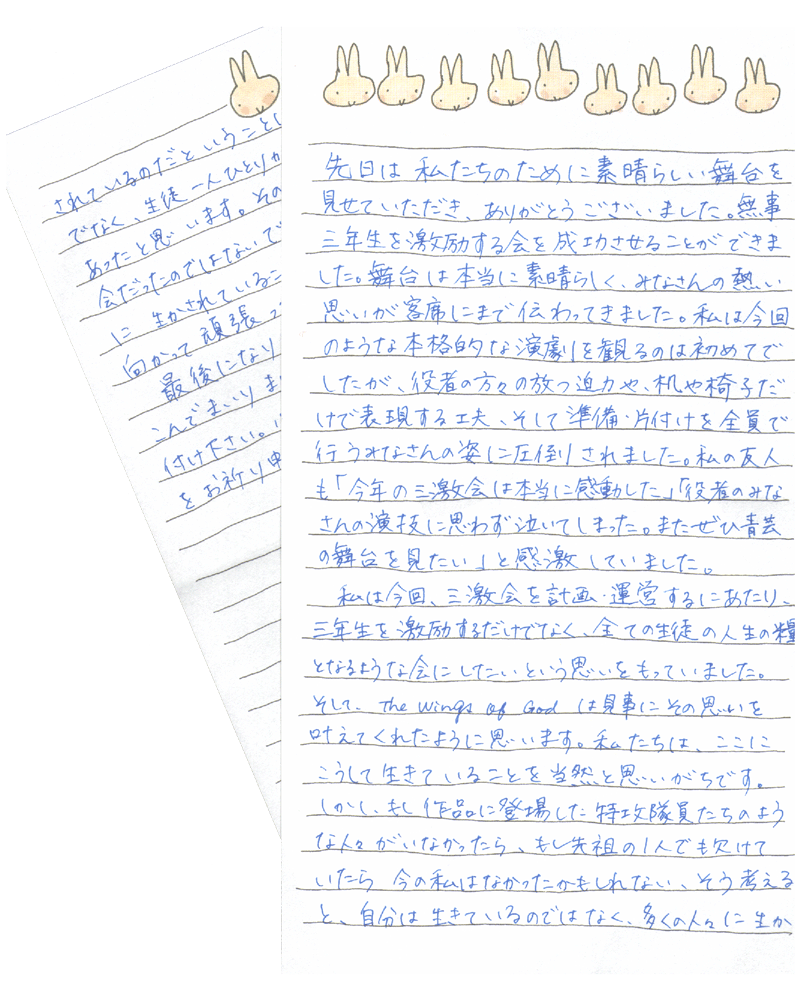 先日は私たちのために素晴らしい舞台を
見せていただき、ありがとうございました。無事
三年生を激励する会を成功させることができま
した。舞台は本当に素晴らしく、みなさんの熱い
思いが客席にまで伝わってきました。私は今回
のような本格的な演劇を観るのは初めてで
したが、役者の方々の放つ迫力や、机や椅子だ
けで表現する工夫、そして準備・片付けを全員で
行うみなさんの姿に圧倒されました。私の友人
も「今年の三激会は本当に感動した」「役者のみな
さんの演技に思わず泣いてしまった。またぜひ青芸
の舞台を見たい」と感激していました。
私は今回、三激会を計画・運営するにあたり、
三年生を激励するだけでなく、全ての生徒の人生の糧
となるような会にしたいという思いをもっていました。
そして、The Wings of God は見事にその思いを
叶えてくれたように思います。私たちは、ここに
こうして生きていることを当然と思いがちです。
しかし、もし作品に登場した特攻隊員たちのよう
な人々がいなかったら、もし先祖の1人でも欠けて
いたら今の私はなかったかもしれない、そう考える
と、自分は生きているのではなく、多くの人々に生か
されているのだということに
でなく、生徒一人ひとりか
あったと思います。その
会だったのではないで
に生かされているこ
向かって頑張っ
最後になり
こんでまいりま
付け下さい。
をお祈り申